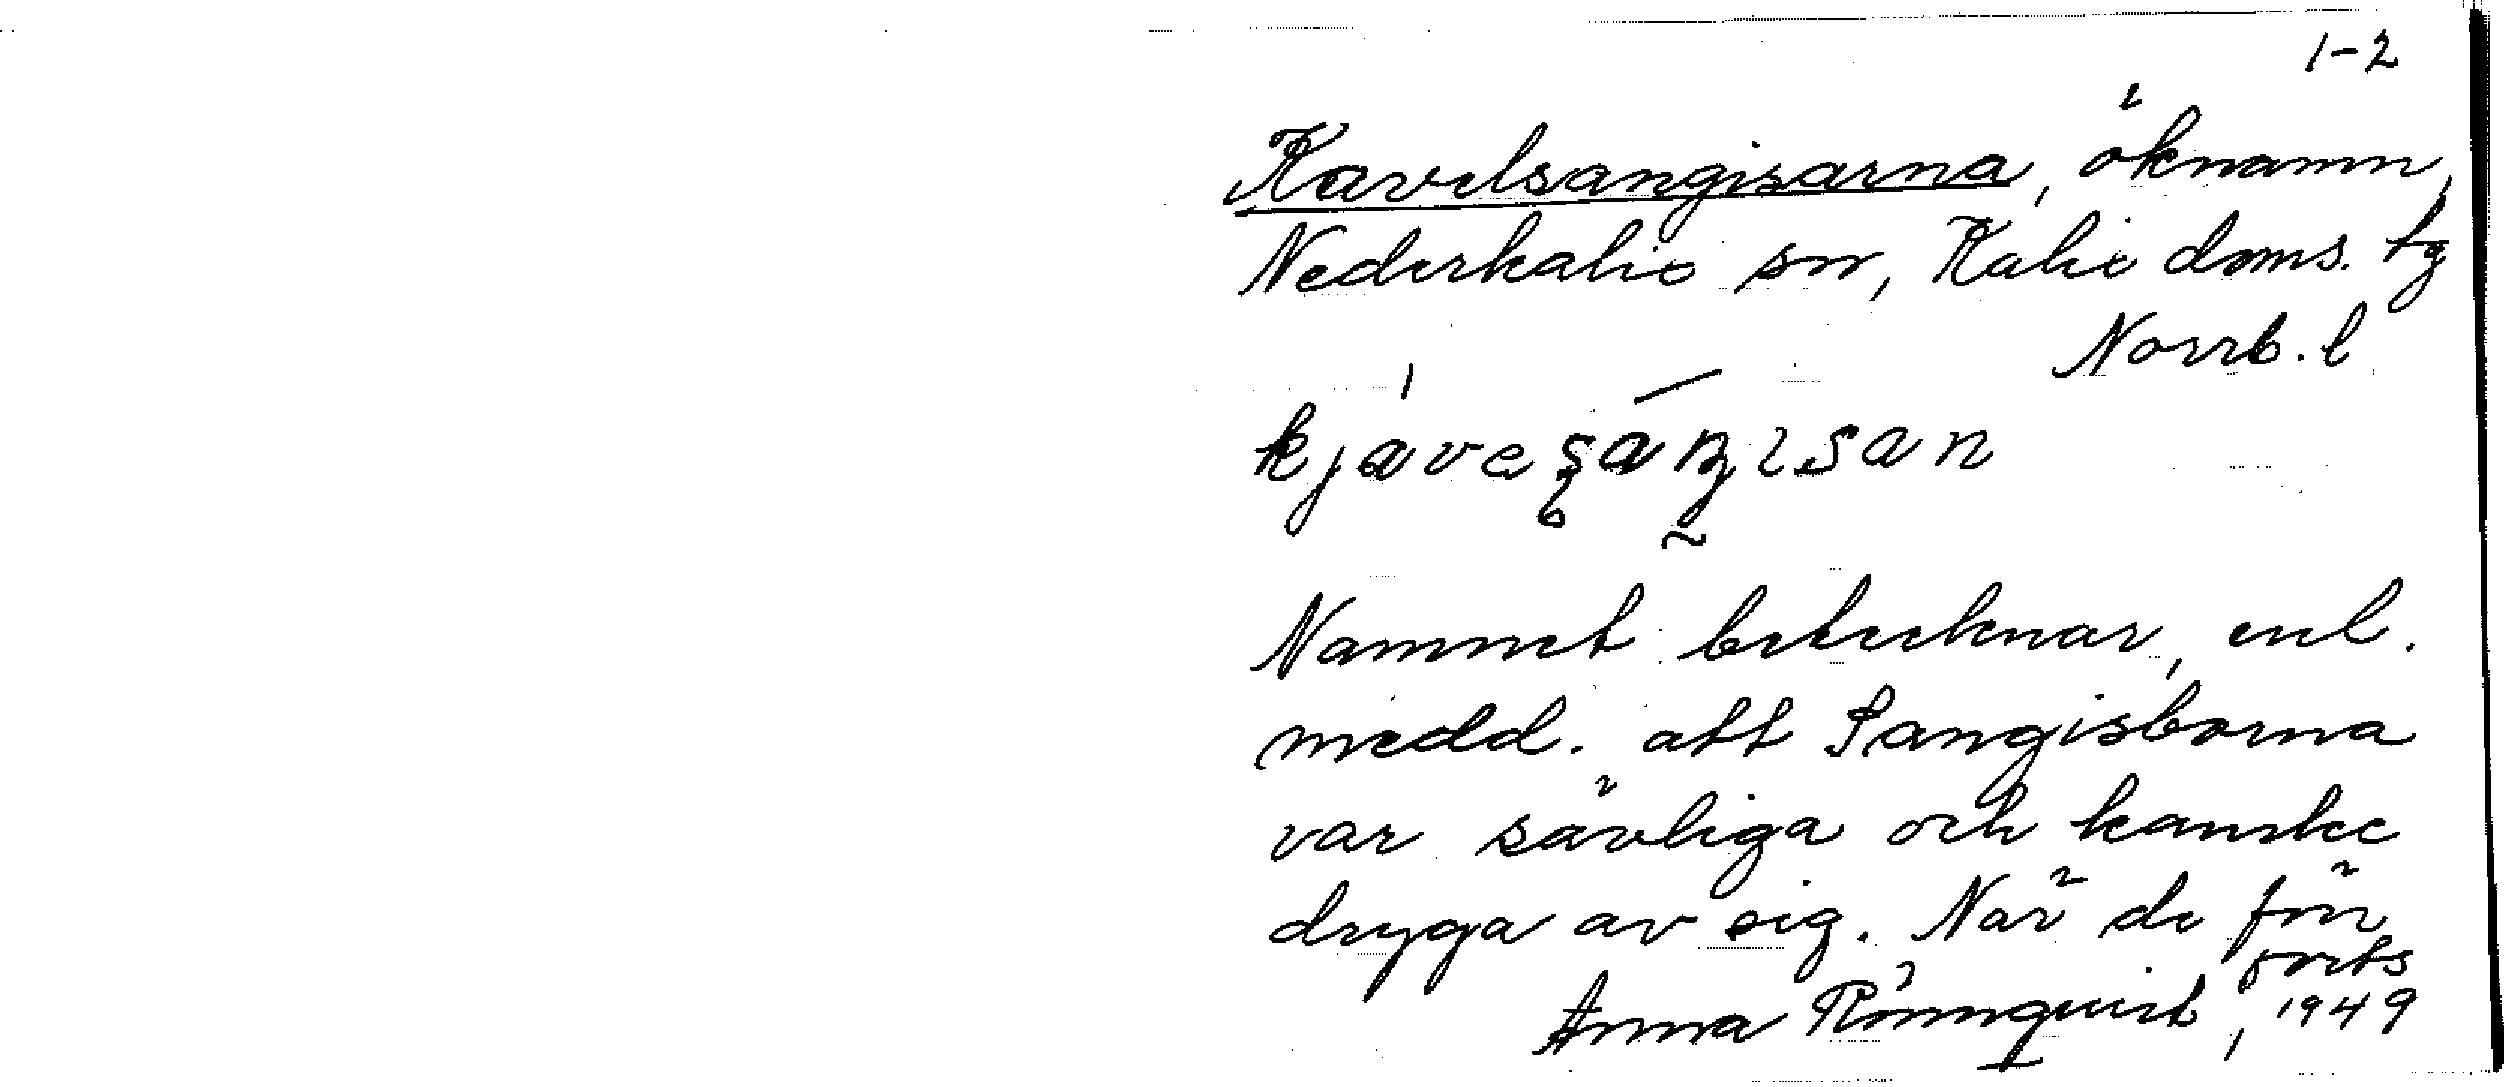 1-2
Kavelsangisarna, öknamn,
Nederkalix sn, Kalix doms. tg
Norrb. l
kjavesaŋisan
Namnet betecknar, enl.
medd. att Sangisborna
var sävliga och kanske
dryga av sig. När de för
forts
Anna Rönnquist, 1949